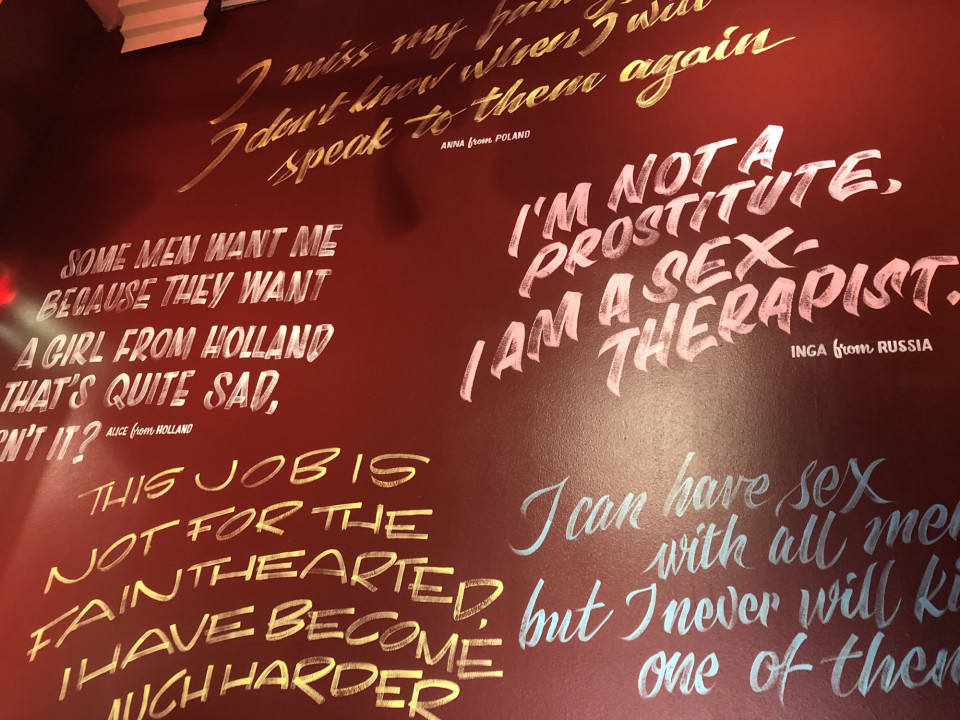 I miss my
I don't know when I will
speak to them again
ANNA from POLAND
I'M NOT A
PROSTITUTE,
I AM A SEX-
THERAPIST.
INGA from RUSSIA
SOME MEN WANT ME
BECAUSE THEY WANT
A GIRL FROM HOLLAND
THAT'S QUITE SAD,
ISN'T IT?
ALICE from HOLLAND
THIS JOB IS
NOT FOR THE
FAINTHEARTED,
I HAVE BECOME
MUCH HARDER
I can have sex
with all
but I never will
one of them